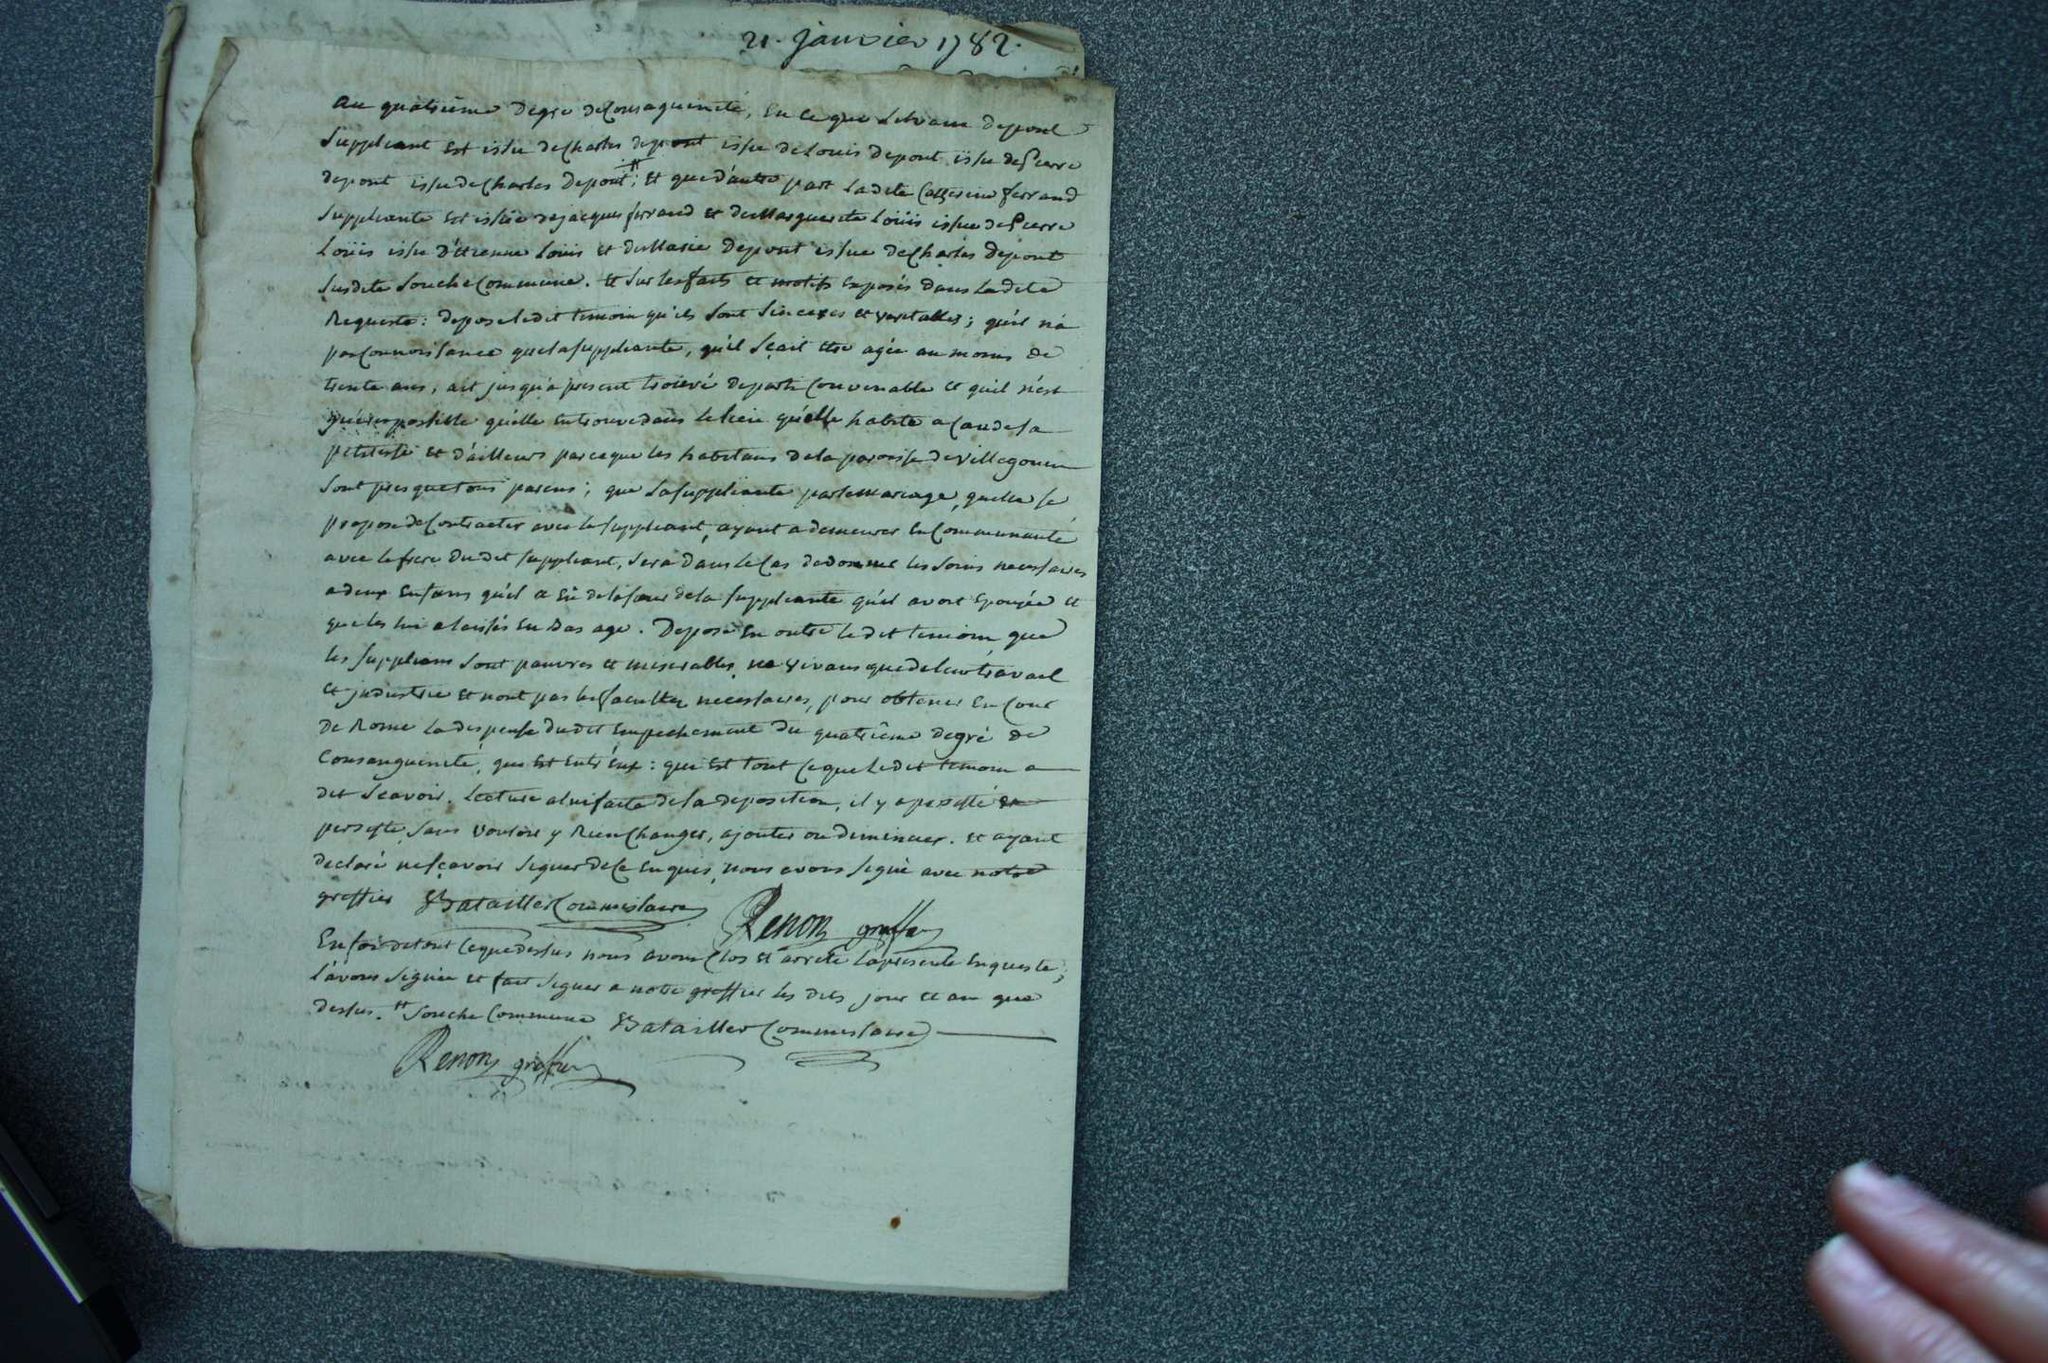 21. janvier 1782.
au quatrieme degre de Consaguinité, en ce que silvain depont
suppliant est issu de Charles depont issu de Louis depont issu de Pierre
depont issu de Charles depont ;# et que d'autre part ladite Catherine ferrand
suppliante est issüe de jacques ferrand et de Marguerite Loüis issue de Pierre
Loüis issu d'étienne Loüis et de Marie depont issue de Charles depont
susdite souche Commune. et sur les faits et motifs exposés dans ladite
Requeste : depose ledit temoin qu'ils sont sinceres et veritables ; qu'il n'a
pas Connoissance que la suppliante, qu'il sçait etre agée au moins de
trente ans, ait jusqu'a present trouvé de parti Convenable et qu'il n'est
possible qu'elle en trouve dans le lieu qu'elle habite a Cause de sa
petitesse et d'ailleurs parce que les habitans de la paroisse de villegouin
sont presque tous parens ; que la suppliante par le Mariage, qu'elle se
propose de Contracter avec le suppliant, ayant a demeurer en Communauté
avec le frere du dit suppliant, sera dans le Cas de donner les soins necessaires
a deux enfans qu'il a eü de la soeur de la suppliante qu'il avoit epousée et
qu'elle lui a laissés en bas age. Depose en outre le dit temoin que
les supplians sont pauvres et miserables, ne vivans que de leur travail
et industrie et n'ont pas les facultez necessaires, pour obtenir en Cour
de Rome la dispense du dit empechement du quatrième degré de
Consanguinité, qui est entr'eux : qui est tout Ce que le dit temoin a
dit sçavoir. lecture a lui faite de sa deposition, il y a persisté et
persiste, sans vouloir y Rien Changer, ajouter ou diminuer. et ayant
declaré ne sçavoir signer de Ce enquis, nous avons signé avec notre
greffier Batailler Commissaire Renon greffier
En foi de tout Ce que dessus nous avons Clos et arreté la presente Enqueste ;
l'avons signée et fait signer a notre greffier les dits jour et an que
dessus. # souche Commune Batailler Commissaire
Renon greffier